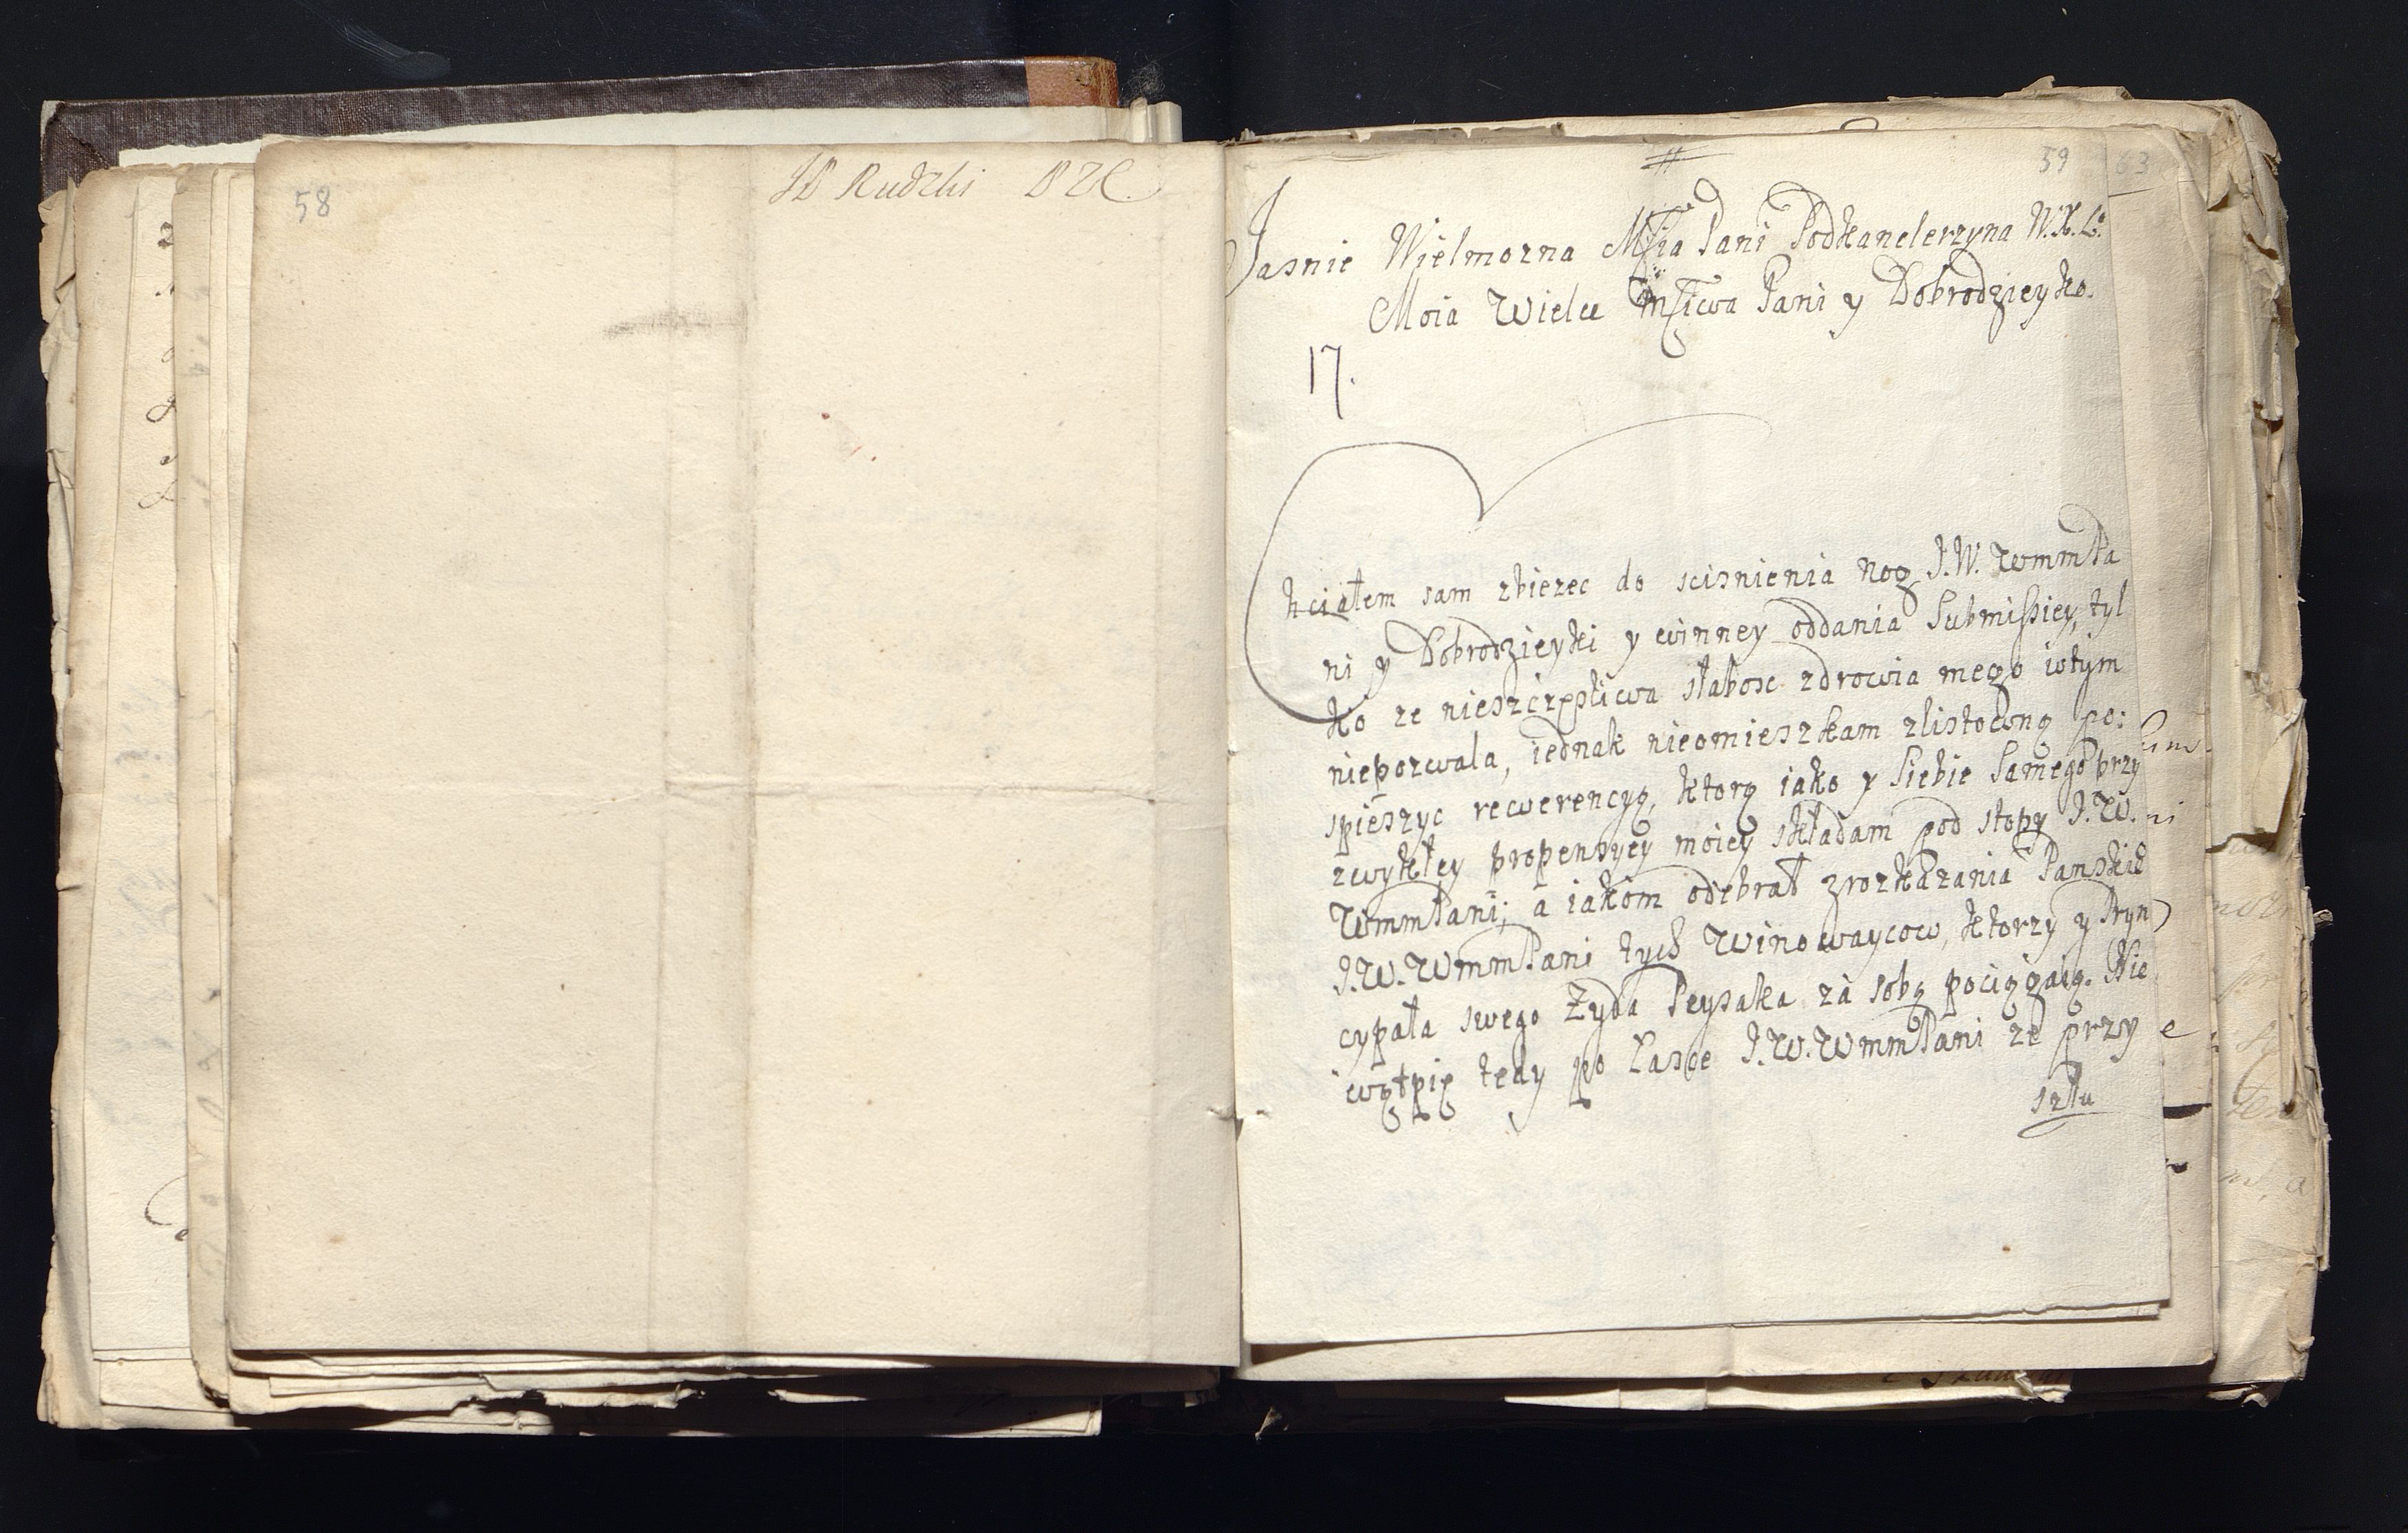 58
JP Rudzki
59
63
Jasnie Wielmozna Mścia Pani Podkanclerzyna W. X. L.
Moia Wielce Mściwa Pani y Dobrodzieyko.
17.
Chciałem sam zbiezec do scisnienia nog J. W. Wmm Pa
ni y Dobrodzieyki y winney oddania Submissiey, tyl
ko ze nieszczęsliwa słabosc zdrowia mego wtym
niepozwala, iednak nieomieszkam zlistowną po:
spieszyc rewerencyą, ktorą iako y Siebie Samego przy
zwykłey propensyey moiey składam pod stopy J. W.
Wmm Pani; a iakom odebrał z rozkazania Panskie
J. W. Wmm Pani tych Winowaycow, ktorzy y Pryn
cypała swego Zyda Peysaka za sobą pociągaią. Nie
wątpię tedy po Łasce J. W. Wmm Pani ze przy
szłu